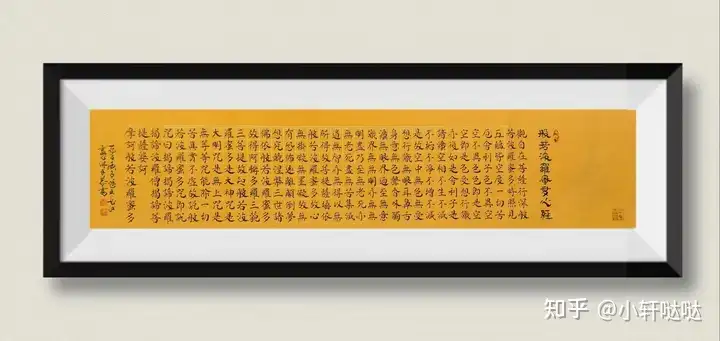 般若波羅蜜多心經
觀自在菩薩行深般
若波羅蜜多時照見
五蘊皆空度一切苦
厄舍利子色不異空
空不異色色即是空
空即是色受想行識
亦復如是舍利子是
諸法空相不生不滅
不垢不淨不增不減
是故空中無色無受
想行識無眼耳鼻舌
身意無色聲香味觸
法無眼界乃至無意
識界無無明亦無無
明盡乃至無老死亦
無老死盡無苦集滅
道無智亦無得以無
所得故菩提薩埵依
般若波羅蜜多故心
無罣礙無罣礙故無
有恐怖遠離顛倒夢
想究竟涅槃三世諸
佛依般若波羅蜜多
故得阿耨多羅三藐
三菩提故知般若波
羅蜜多是大神咒是
大明咒是無上咒是
無等等咒能除一切
苦真實不虛故說般
若波羅蜜多咒即說
咒曰揭諦揭諦波羅
揭諦波羅僧揭諦菩
提薩婆訶
摩訶般若波羅蜜多
知乎 @小轩哒哒